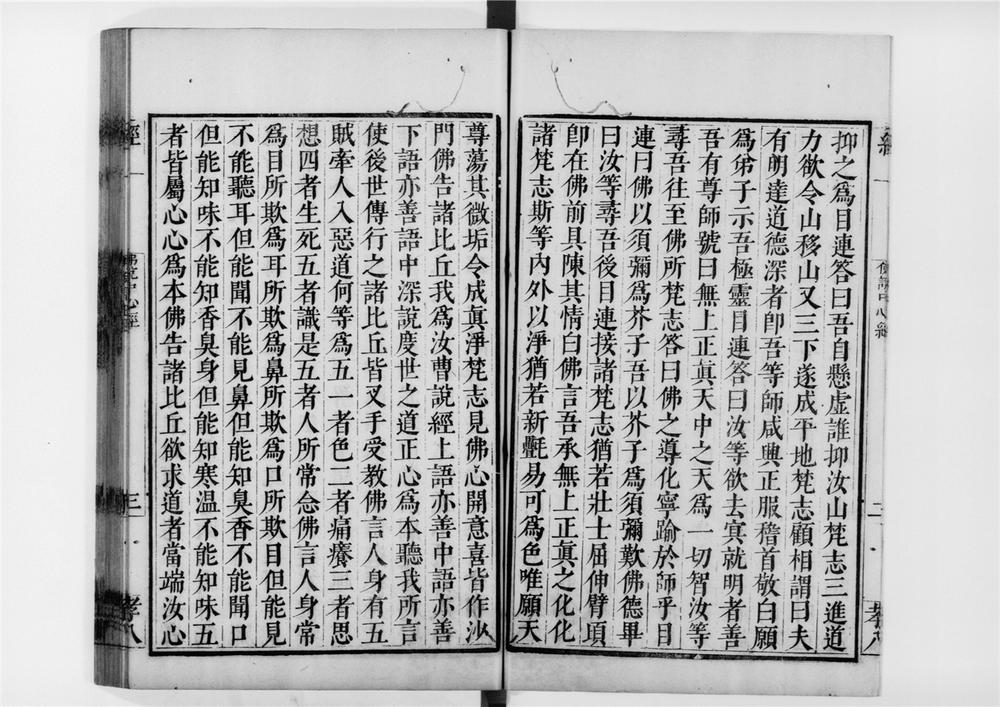 抑之爲目連荅曰吾自懸虛誰抑汝山梵志三進道
力欲令山移山又三下遂成平地梵志顧相謂曰夫
有明達道德深者卽吾等師咸興正服稽首敬白願
爲弟子示吾極靈目連荅曰汝等欲去㝠就明者善
吾有尊師號曰無上正眞天中之天爲一切智汝等
尋吾往至佛所梵志荅曰佛之導化寧踰於師乎目
連曰佛以須彌爲芥子吾以芥子爲須彌歎佛德畢
曰汝等尋吾後目連接諸梵志猶若壯士屈伸臂頃
卽在佛前具陳其情白佛言吾承無上正眞之化化
諸梵志斯等內外以淨猶若新氎易可爲色唯願天
尊蕩其微垢令成眞淨梵志見佛心開意喜皆作沙
門佛告諸比丘我爲汝曹說經上語亦善中語亦善
下語亦善語中深說度世之道正心爲本聽我所言
使後世傳行之諸比丘皆叉手受教佛言人身有五
賊牽人入惡道何等爲五一者色二者痛癢三者思
想四者生死五者識是五者人所常念佛言人身常
爲目所欺爲耳所欺爲鼻所欺爲口所欺目但能見
不能聽耳但能聞不能見鼻但能知臭香不能聞口
但能知味不能知香臭身但能知寒温不能知味五
者皆屬心心爲本佛告諸比丘欲求道者當端汝心
經 一
三
孝八